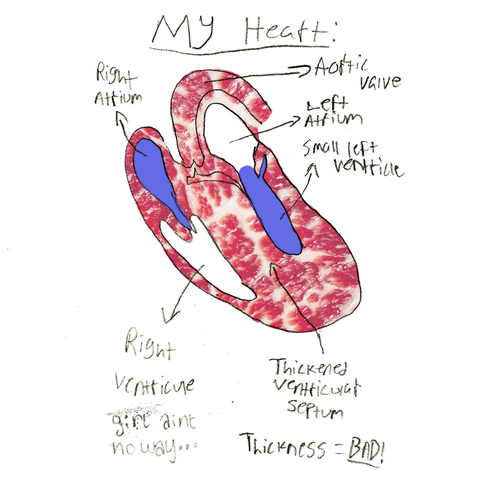 My Heart:
Right
Atrium
Aortic
valve
Left
Atrium
Small left
ventricle
Right
ventricle
girl aint
no way...
Thickened
ventricular
septum
Thickness = BAD!